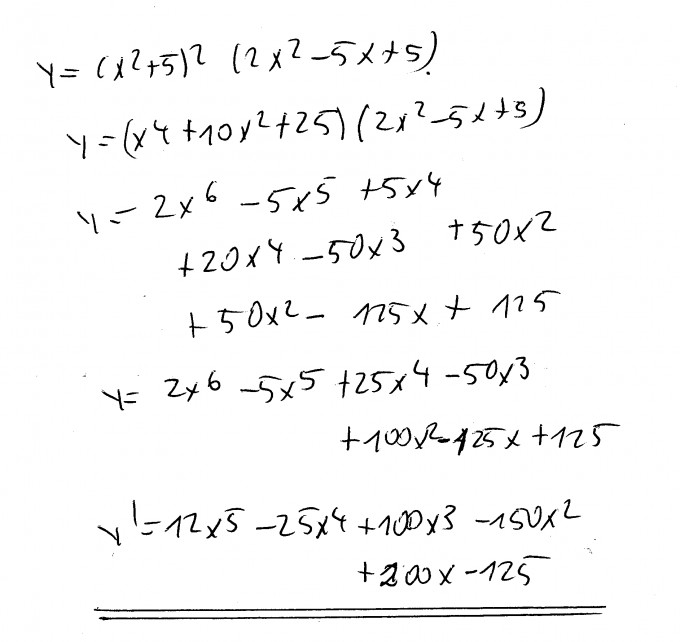 y = (x²+5)² (2x²-5x+5)
y = (x⁴+10x²+25)(2x²-5x+5)
y = 2x⁶ -5x⁵ +5x⁴
+20x⁴ -50x³ +50x²
+50x² - 125x + 125
y = 2x⁶ -5x⁵ +25x⁴ -50x³
+100x² -125x +125
y' = 12x⁵ -25x⁴ +100x³ -150x²
+200x -125